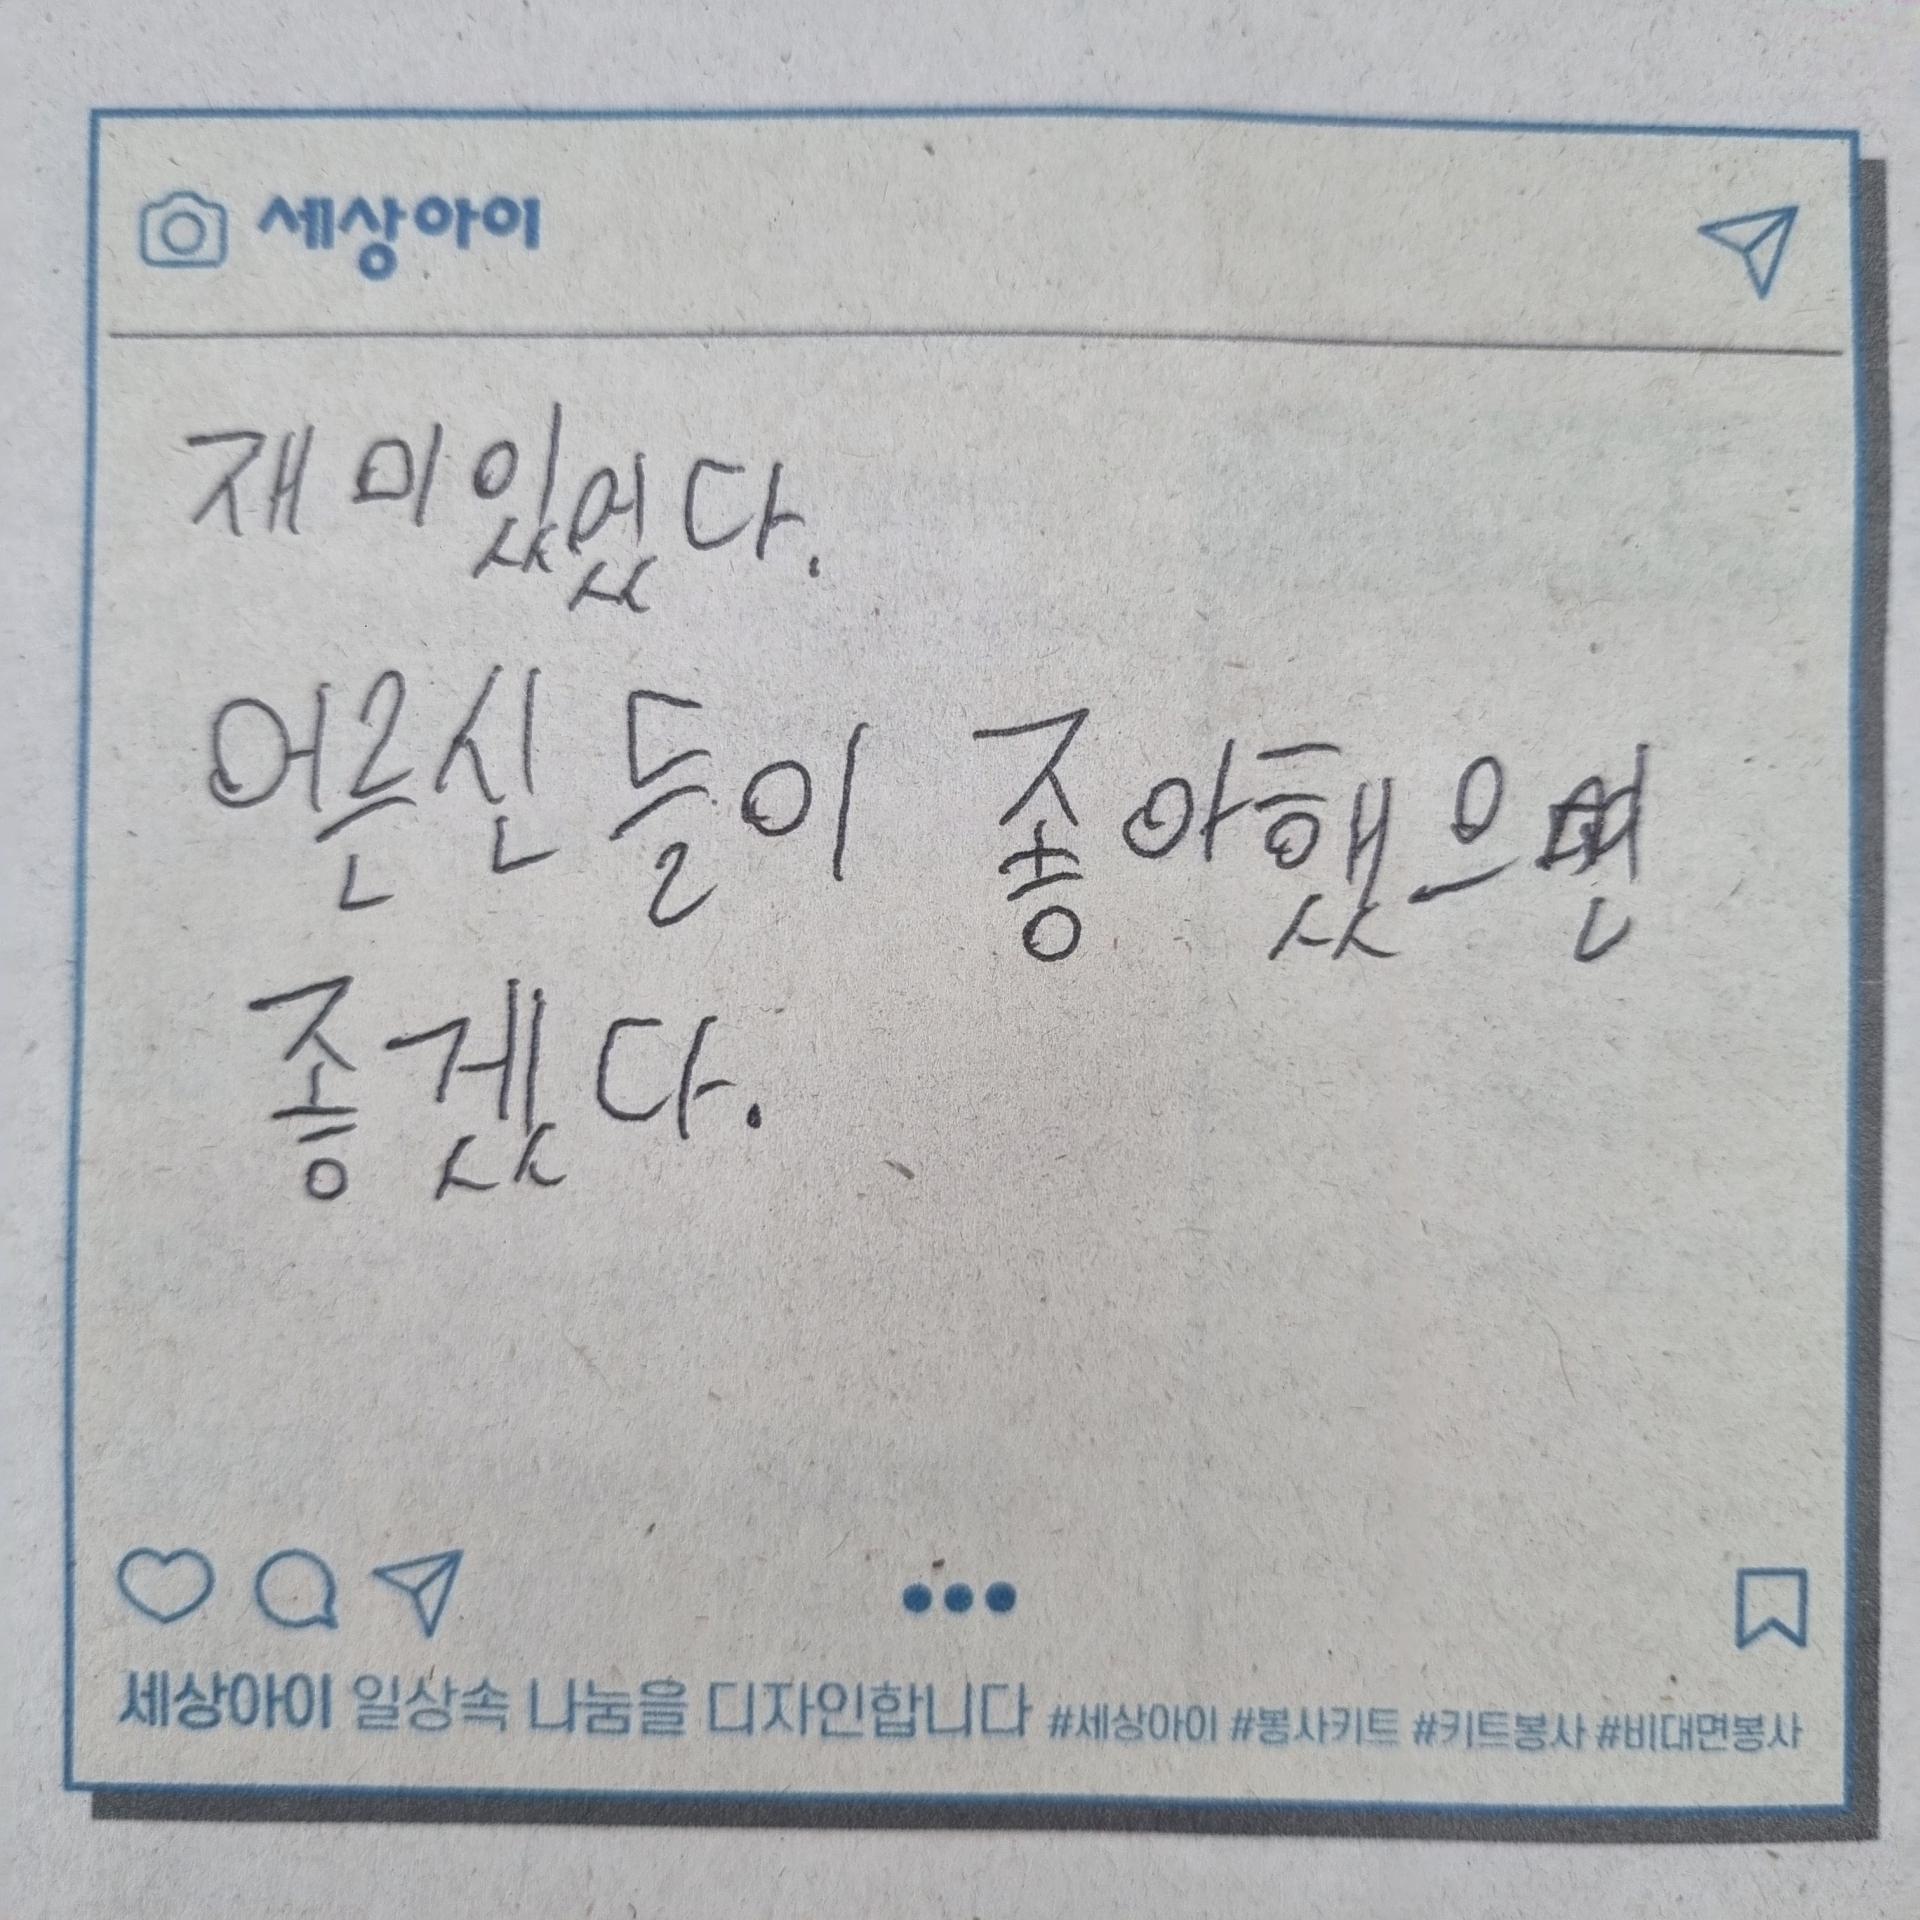 세상아이
재미있었다.
어른신들이 좋아했으면
좋겠다.
세상아이 일상속 나눔을 디자인합니다 #세상아이 #봉사키트 #키트봉사 #비대면봉사